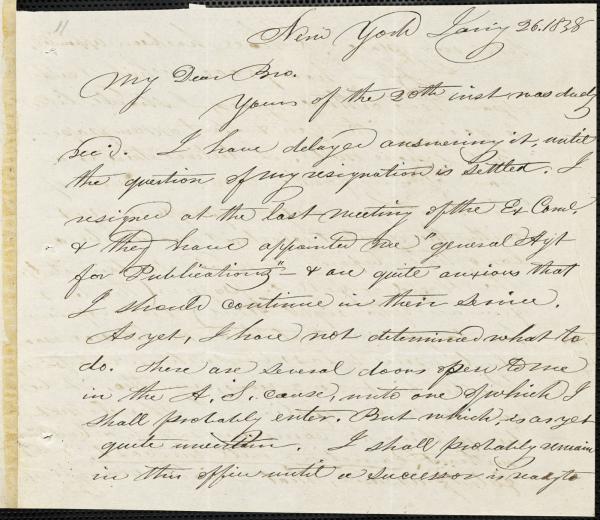 11
New York Jan'y 26. 1838
My Dear Bro.
Yours of the 20th inst was duly
rec'd. I have delayed answering it, until
the question of my resignation is settled. I
resigned at the last meeting of the Ex Come.
& they have appointed me "general Agt
for Publications" - & are quite anxious that
I should continue in their service.
As yet, I have not determined what to
do. There are several doors open to me
in the A. S. cause, into one of which I
shall probably enter. But which, is as yet
quite uncertain. I shall probably remain
in this office until a successor is ready to